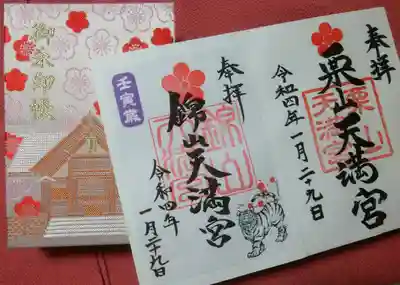 御朱印帳
奉拝
栗山天満宮
栗山
天満宮
令和四年一月二十九日
奉拝
錦山天満宮
錦山
令和四年
一月二十九日
壬寅歳